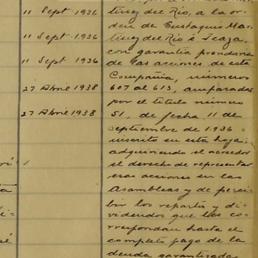 tínez del Río, a la or-
11 Sept 1936 den de Eustaquio Mar-
11 Sept 1936 tínez del Río é Icaza,
con garantía prendaria
11 Sept 1936 de las acciones de esta
Compañía, números
27 Abril 1938 607 al 613, amparadas
por el título número
27 Abril 1938 51, de fecha 11 de
septiembre de 1936
inscrito en esta hoja,
adquiriendo el acreedor
el derecho de representar
esas acciones en las
Asambleas y de perci-
bir los repartos y di-
videndos que les co-
rrespondan hasta el
completo pago de la
deuda garantizada